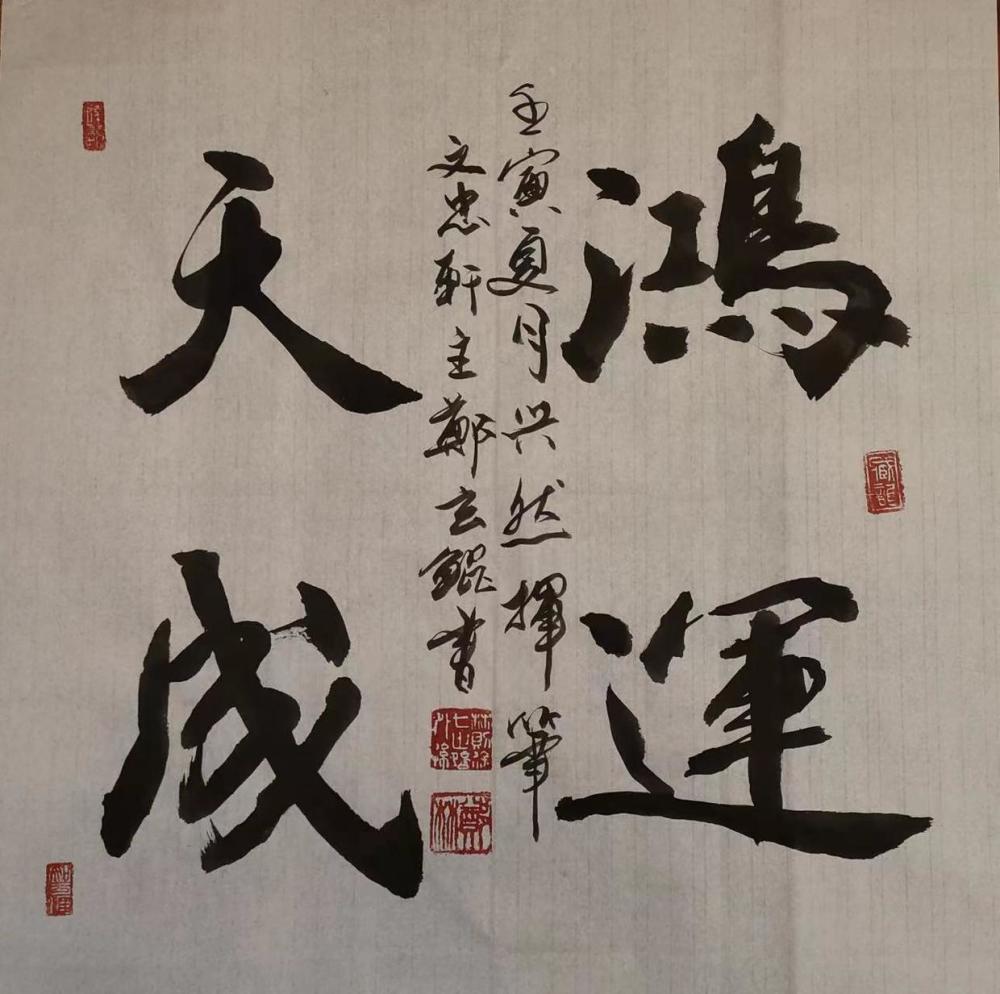 鴻運
天成
壬寅夏月兴然揮筆
文忠軒主鄭玄鯤書